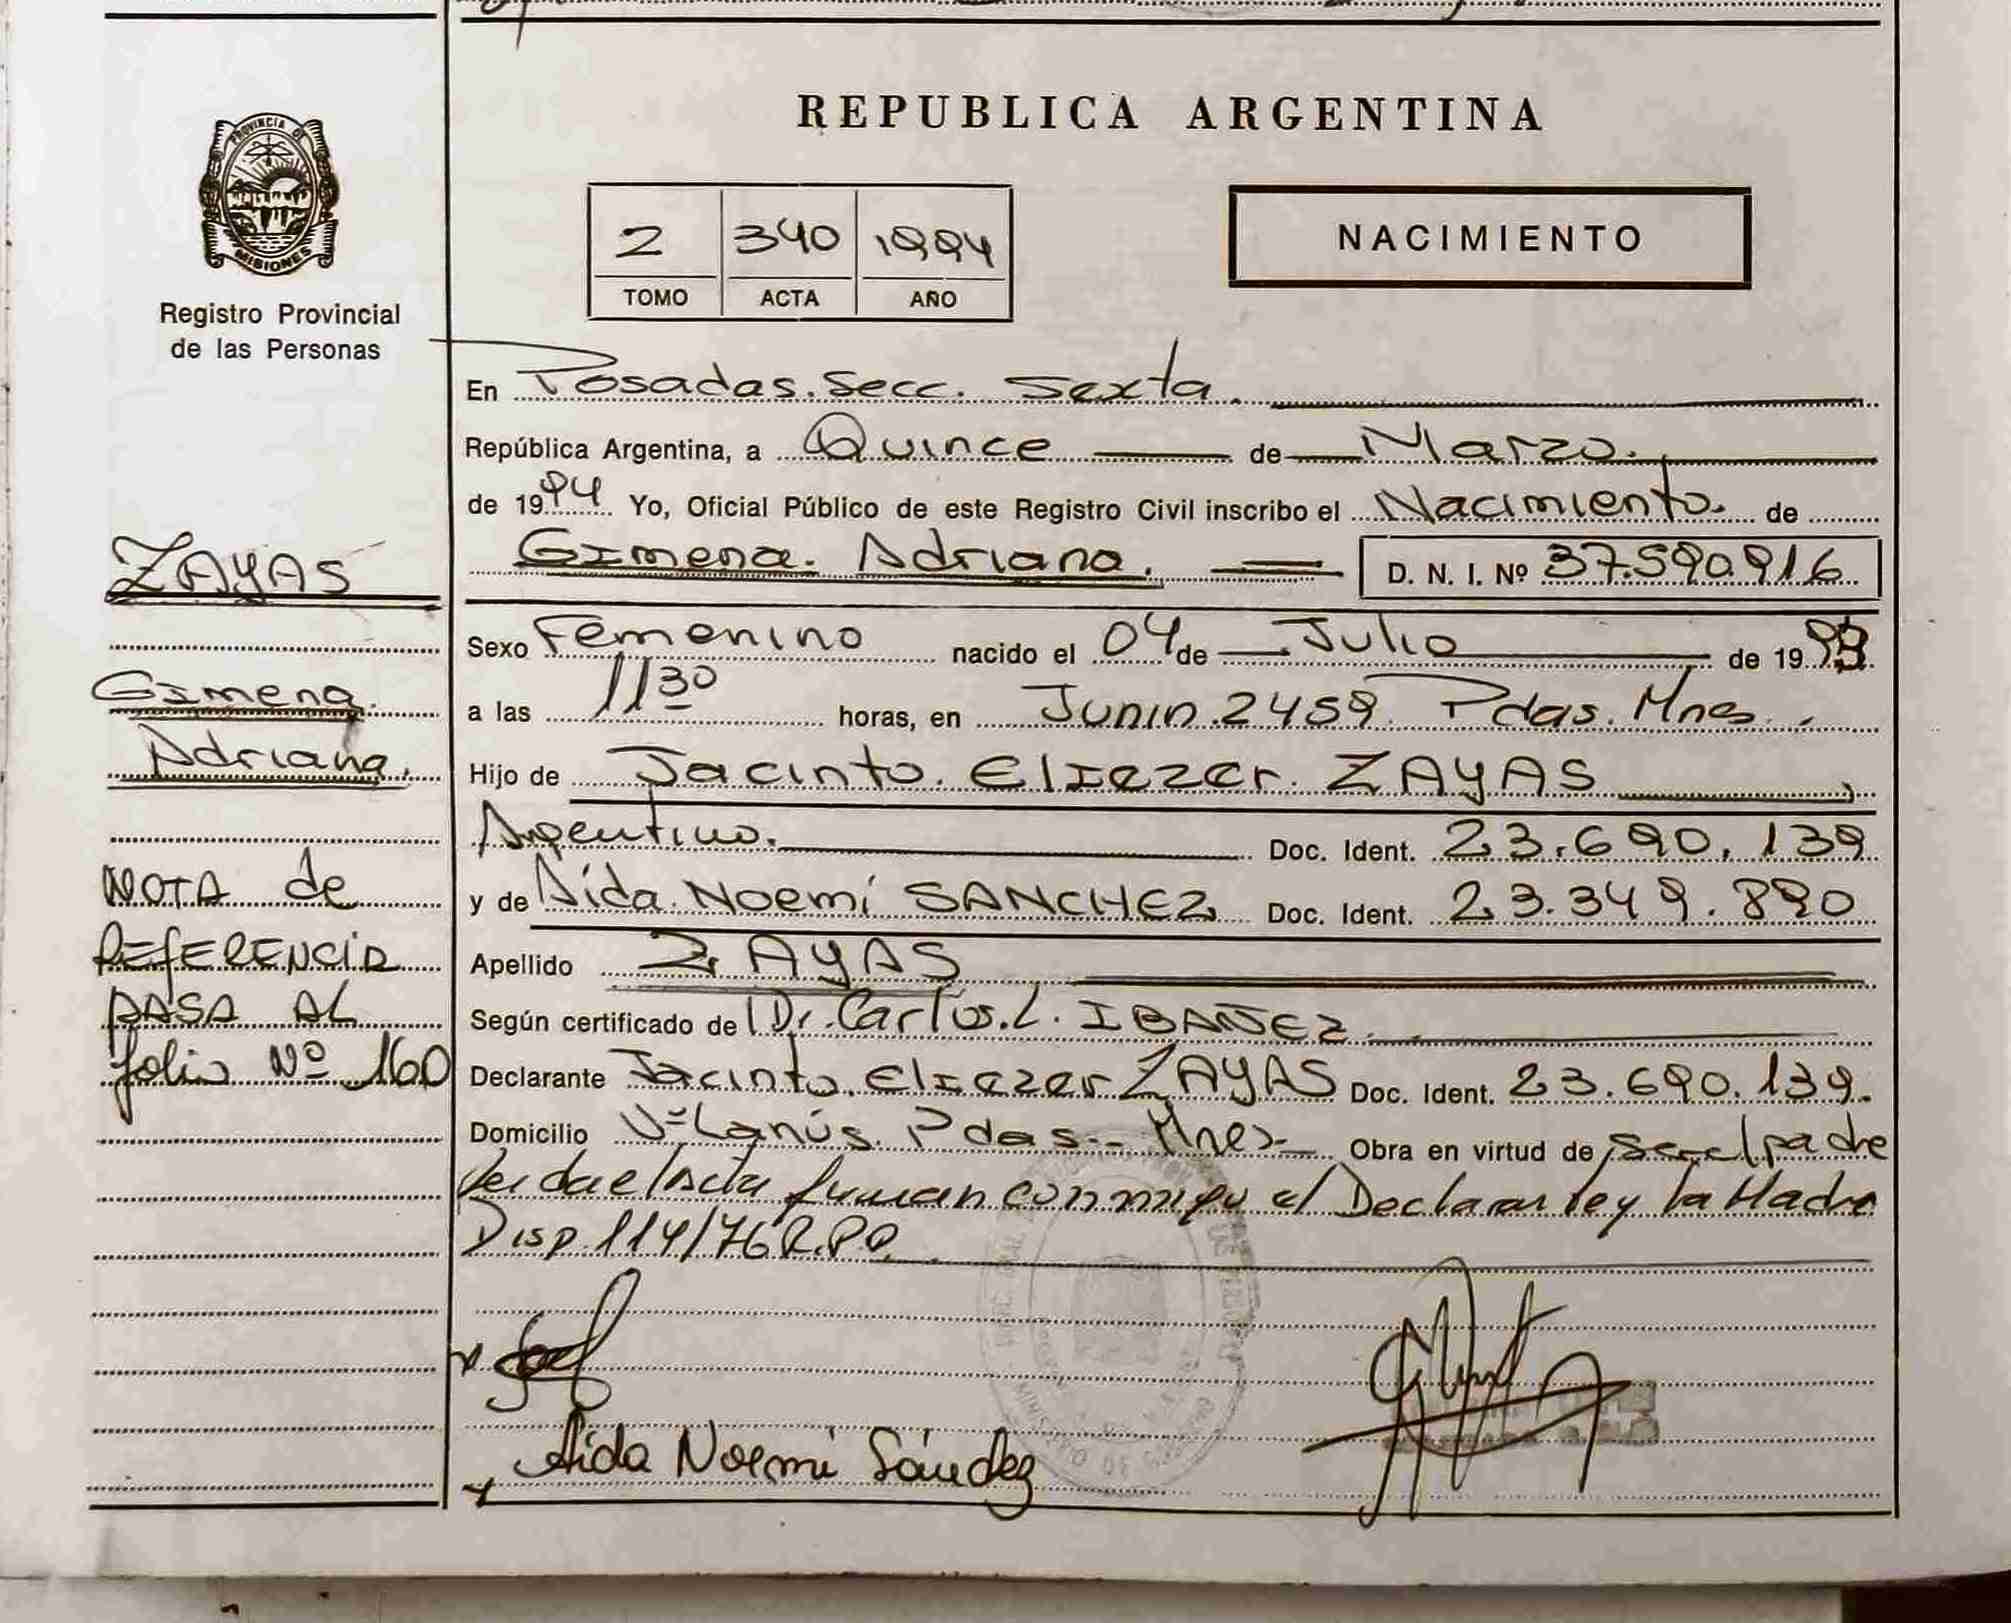 PROVINCIA DE
MISIONES
Registro Provincial
de las Personas
ZAYAS
Gimena
Adriana.
NOTA de
REFERENCIA
PASA AL
folio Nº 160
REPUBLICA ARGENTINA
2 340 1994
TOMO ACTA AÑO
NACIMIENTO
En Posadas. Secc. Sexta.
República Argentina, a Quince de Marzo.
de 1994 Yo, Oficial Público de este Registro Civil inscribo el Nacimiento. de
Gimena. Adriana. D. N. I. Nº 37.590.916
Sexo Femenino nacido el 04 de Julio de 1993
a las 11 30 horas, en Junin. 2459. Pdas. Mnes.
Hijo de Jacinto. Eliezer. ZAYAS
Argentino. Doc. Ident. 23.690.139
y de Aida. Noemí SANCHEZ Doc. Ident. 23.349.890
Apellido ZAYAS
Según certificado de Dr. Carlos. L. IBAÑEZ.
Declarante Jacinto. Eliezer ZAYAS Doc. Ident. 23.690.139.
Domicilio Vª Lanús. Pdas.- Mnes- Obra en virtud de ser el padre
Leida el Acta firman conmigo el Declarante y la Madre
Disp. 114/76 R.P.P.
Aida Noemí Sánchez